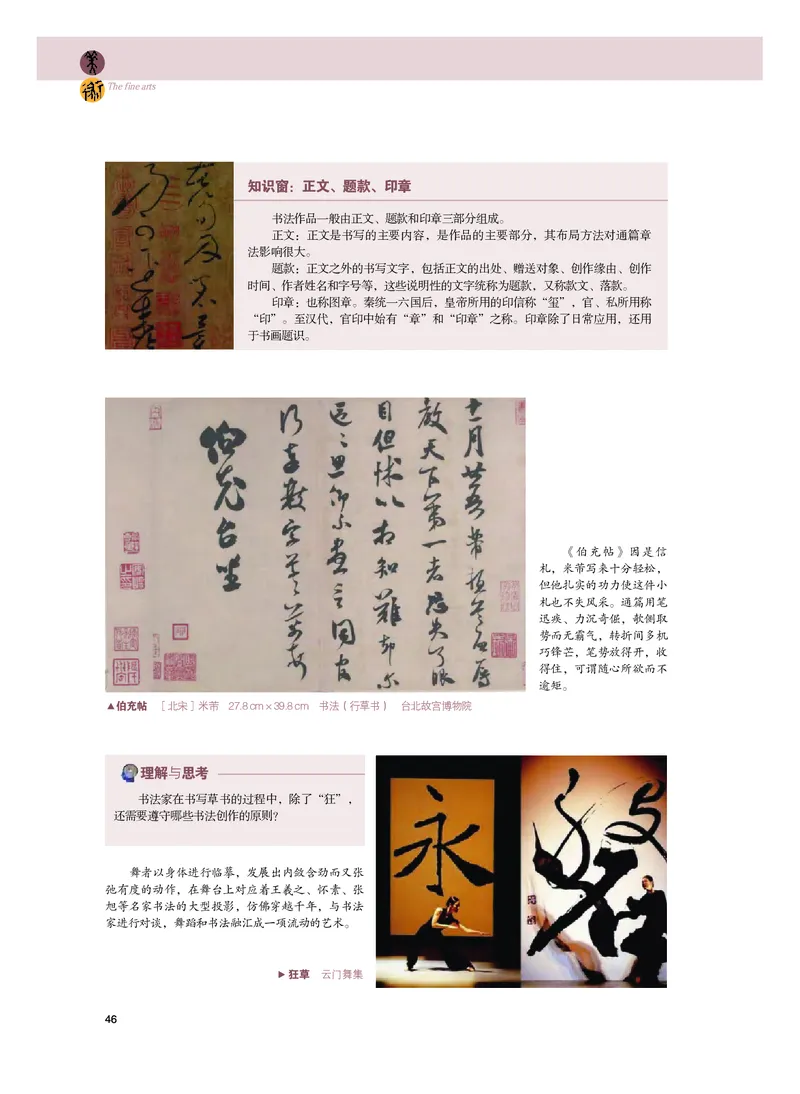 The fine arts
知识窗：正文、题款、印章
书法作品一般由正文、题款和印章三部分组成。
正文：正文是书写的主要内容，是作品的主要部分，其布局方法对通篇章
法影响很大。
题款：正文之外的书写文字，包括正文的出处、赠送对象、创作缘由、创作
时间、作者姓名和字号等，这些说明性的文字统称为题款，又称款文、落款。
印章：也称图章。秦统一六国后，皇帝所用的印信称“玺”，官、私所用称
“印”。至汉代，官印中始有“章”和“印章”之称。印章除了日常应用，还用
于书画题识。
十一月廿五
目但怵以相知難却尔
伯充台坐
《伯充帖》因是信
札，米芾写来十分轻松，
但他扎实的功力使这件小
札也不失风采。通篇用笔
迅疾、力沉奇倔，欹侧取
势而无霸气，转折间多机
巧锋芒，笔势放得开，收
得住，可谓随心所欲而不
逾矩。
▲伯充帖 ［北宋］米芾 27.8cm×39.8cm 书法（行草书） 台北故宫博物院
理解与思考
书法家在书写草书的过程中，除了“狂”，
还需要遵守哪些书法创作的原则？
永
舞者以身体进行临摹，发展出内敛含劲而又张
弛有度的动作，在舞台上对应着王羲之、怀素、张
旭等名家书法的大型投影，仿佛穿越千年，与书法
家进行对谈，舞蹈和书法融汇成一项流动的艺术。
▶狂草 云门舞集
46